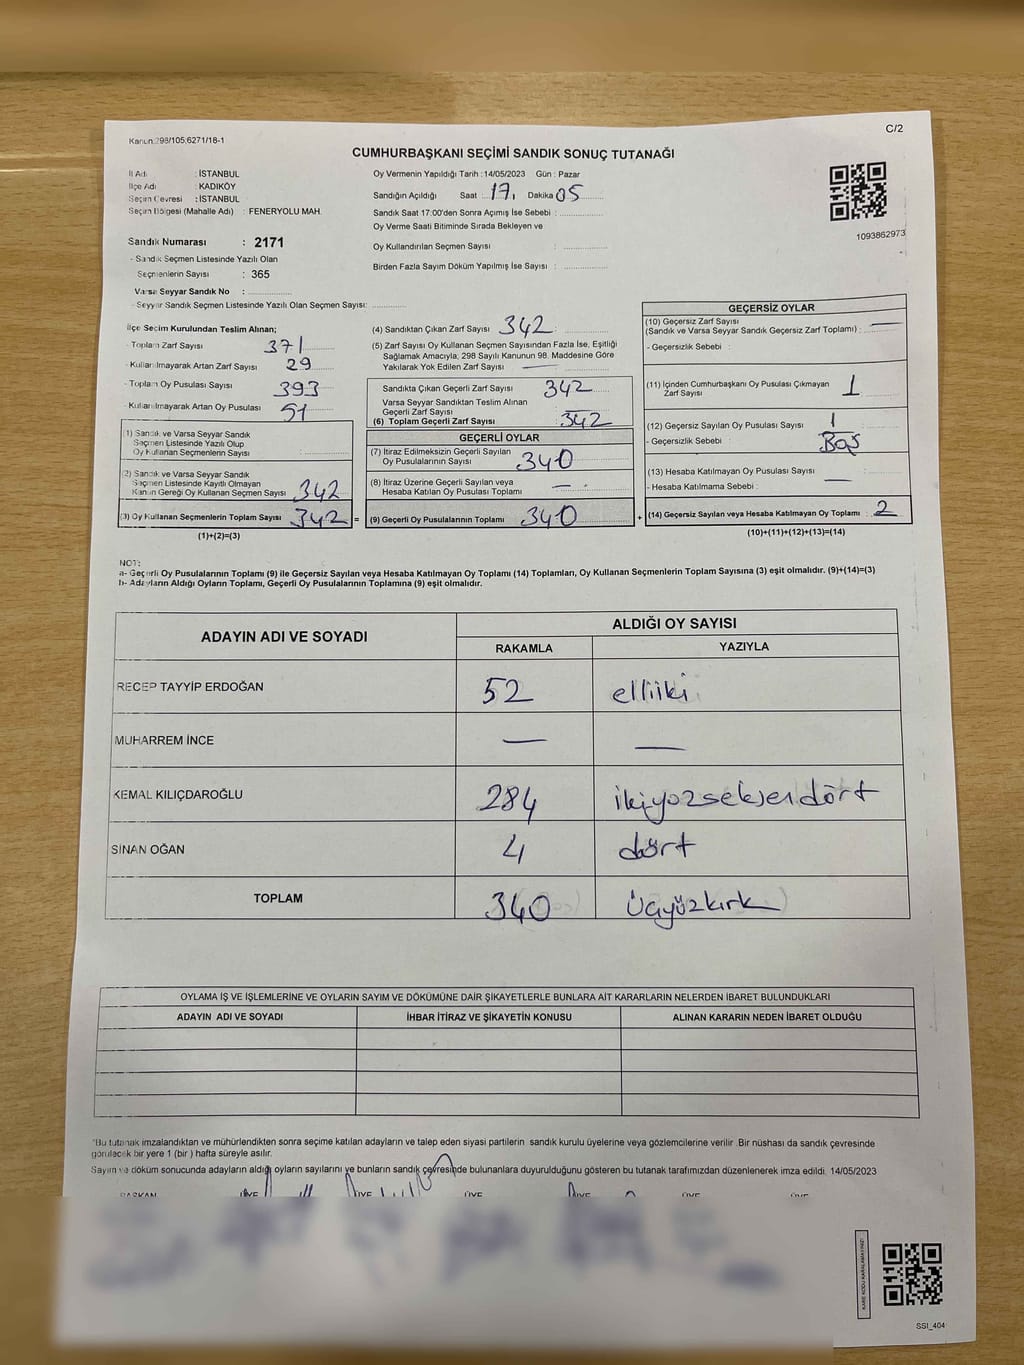 C/2
Kanun:298/105,6271/18-1
CUMHURBAŞKANI SEÇİMİ SANDIK SONUÇ TUTANAĞI
İl Adı : İSTANBUL
İlçe Adı : KADIKÖY
Seçim Çevresi : İSTANBUL
Seçim Bölgesi (Mahalle Adı) : FENERYOLU MAH.
Sandık Numarası : 2171
- Sandık Seçmen Listesinde Yazılı Olan
Seçmenlerin Sayısı : 365
Varsa Seyyar Sandık No :
- Seyyar Sandık Seçmen Listesinde Yazılı Olan Seçmen Sayısı:
Oy Vermenin Yapıldığı Tarih :14/05/2023 Gün : Pazar
Sandığın Açıldığı Saat : 17, Dakika 05
Sandık Saat 17:00'den Sonra Açımış İse Sebebi :
Oy Verme Saati Bitiminde Sırada Bekleyen ve
Oy Kullandırılan Seçmen Sayısı :
Birden Fazla Sayım Döküm Yapılmış İse Sayısı :
1093862973
İlçe Seçim Kurulundan Teslim Alınan;
- Toplam Zarf Sayısı 371
- Kullanılmayarak Artan Zarf Sayısı 29
- Toplam Oy Pusulası Sayısı 393
- Kullanılmayarak Artan Oy Pusulası 51
(1) Sandık ve Varsa Seyyar Sandık
Seçmen Listesinde Yazılı Olup
Oy Kullanan Seçmenlerin Sayısı :
(2) Sandık ve Varsa Seyyar Sandık
Seçmen Listesinde Kayıtlı Olmayan
Kanun Gereği Oy Kullanan Seçmen Sayısı 342
(3) Oy Kullanan Seçmenlerin Toplam Sayısı 342 =
(1)+(2)=(3)
(4) Sandıktan Çıkan Zarf Sayısı 342
(5) Zarf Sayısı Oy Kullanan Seçmen Sayısından Fazla İse, Eşitliği
Sağlamak Amacıyla, 298 Sayılı Kanunun 98. Maddesine Göre
Yakılarak Yok Edilen Zarf Sayısı : —
Sandıkta Çıkan Geçerli Zarf Sayısı 342
Varsa Seyyar Sandıktan Teslim Alınan
Geçerli Zarf Sayısı : —
(6) Toplam Geçerli Zarf Sayısı : 342
GEÇERLİ OYLAR
(7) İtiraz Edilmeksizin Geçerli Sayılan
Oy Pusulalarının Sayısı 340
(8) İtiraz Üzerine Geçerli Sayılan veya
Hesaba Katılan Oy Pusulası Toplamı —
(9) Geçerli Oy Pusulalarının Toplamı 340 +
GEÇERSİZ OYLAR
(10) Geçersiz Zarf Sayısı
(Sandık ve Varsa Seyyar Sandık Geçersiz Zarf Toplamı) : —
- Geçersizlik Sebebi :
(11) İçinden Cumhurbaşkanı Oy Pusulası Çıkmayan
Zarf Sayısı 1
(12) Geçersiz Sayılan Oy Pusulası Sayısı 1
- Geçersizlik Sebebi : Boş
(13) Hesaba Katılmayan Oy Pusulası Sayısı : —
- Hesaba Katılmama Sebebi :
(14) Geçersiz Sayılan veya Hesaba Katılmayan Oy Toplamı : 2
(10)+(11)+(12)+(13)=(14)
NOT:
a- Geçerli Oy Pusulalarının Toplamı (9) ile Geçersiz Sayılan veya Hesaba Katılmayan Oy Toplamı (14) Toplamları, Oy Kullanan Seçmenlerin Toplam Sayısına (3) eşit olmalıdır. (9)+(14)=(3)
b- Adayların Aldığı Oyların Toplamı, Geçerli Oy Pusulalarının Toplamına (9) eşit olmalıdır.
ADAYIN ADI VE SOYADI ALDIĞI OY SAYISI
RAKAMLA YAZIYLA
RECEP TAYYİP ERDOĞAN 52 elliiki
MUHARREM İNCE — —
KEMAL KILIÇDAROĞLU 284 ikiyüzseksendört
SİNAN OĞAN 4 dört
TOPLAM 340 Üçyüzkırk
OYLAMA İŞ VE İŞLEMLERİNE VE OYLARIN SAYIM VE DÖKÜMÜNE DAİR ŞİKAYETLERLE BUNLARA AİT KARARLARIN NELERDEN İBARET BULUNDUKLARI
ADAYIN ADI VE SOYADI İHBAR İTİRAZ VE ŞİKAYETİN KONUSU ALINAN KARARIN NEDEN İBARET OLDUĞU
*Bu tutanak imzalandıktan ve mühürlendikten sonra seçime katılan adayların ve talep eden siyasi partilerin sandık kurulu üyelerine veya gözlemcilerine verilir. Bir nüshası da sandık çevresinde
görülecek bir yere 1 (bir ) hafta süreyle asılır.
Sayım ve döküm sonucunda adayların aldığı oyların sayılarını ve bunların sandık çevresinde bulunanlara duyurulduğunu gösteren bu tutanak tarafımızdan düzenlenerek imza edildi. 14/05/2023
BAŞKAN ÜYE ÜYE ÜYE ÜYE ÜYE ÜYE
SSI_404